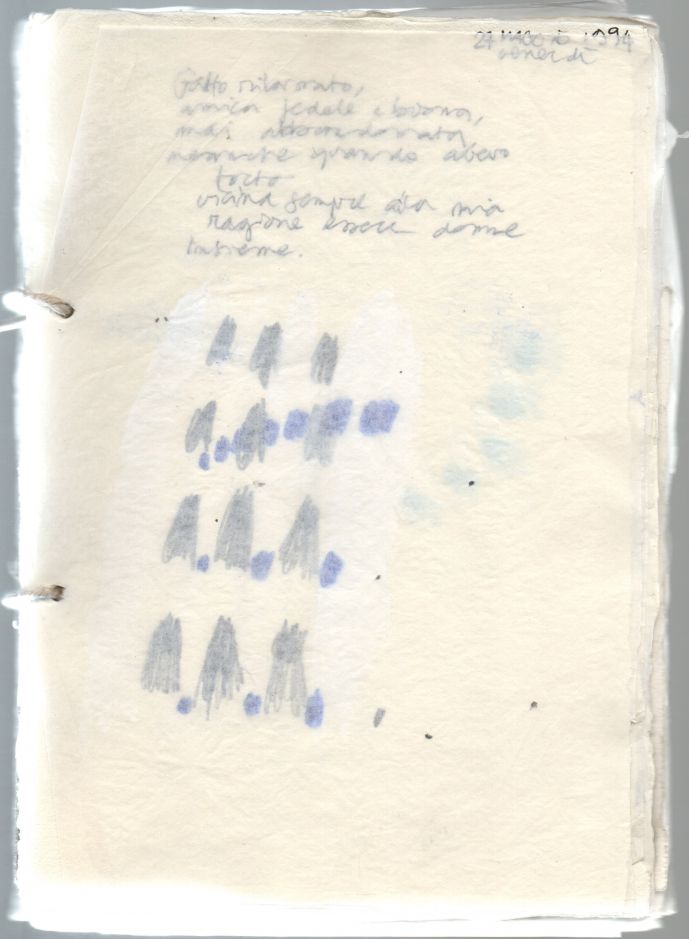 27 MAGGIO 1994
venerdì
Gatto ritornato,
amica fedele e buona,
mai abbandonata,
neanche quando abevo
torto
vicina sempre alla mia
ragione essere donne
insieme.